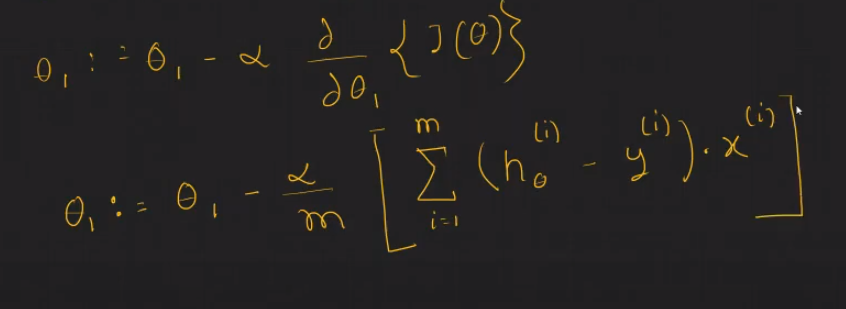 θ₁ := θ₁ - α ∂/∂θ₁ {J(θ)}
θ₁ := θ₁ - α/m [ ∑_{i=1}^{m} (h_θ^{(i)} - y^{(i)}) · x^{(i)} ]